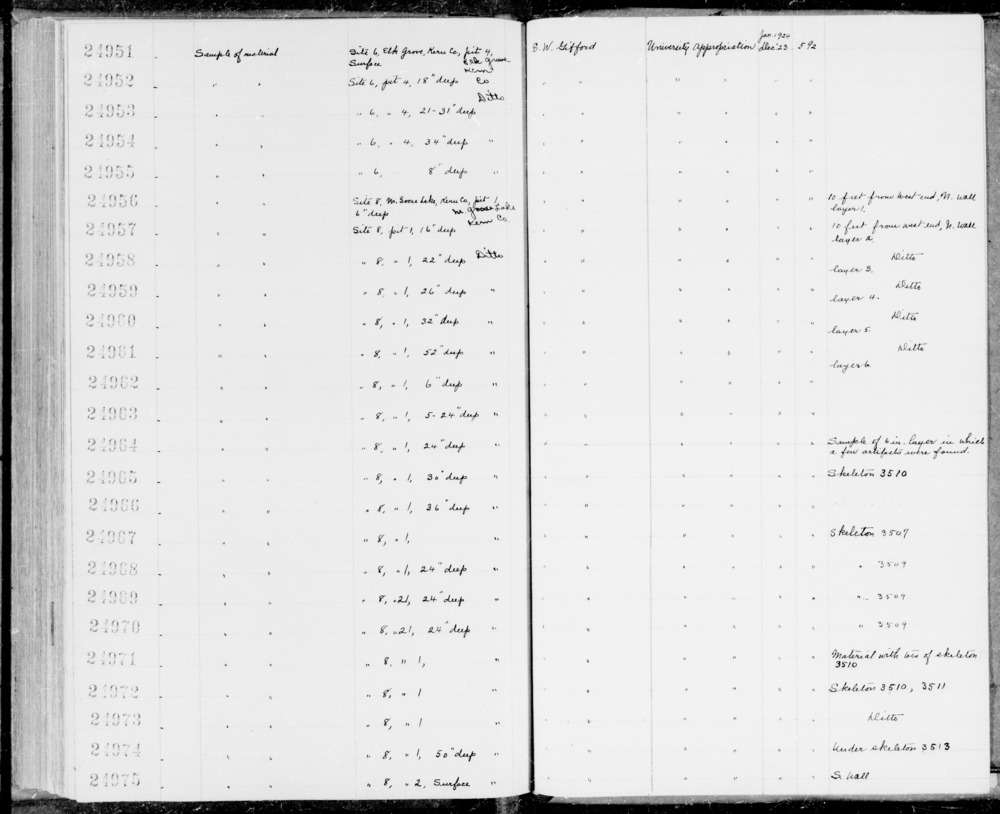 24951 Sample of material Site 6, Elk Grove, Kern Co, pit 4, Surface Elk Grove Kern Co Gifford University Appropriation Jan. 1924 Dec '23 592
24952 " " Site 6, pit 4, 18" deep " " " " " "
24953 " " " 6, " 4, 21-31" deep Ditto " " " " " "
24954 " " " 6, " 4, 34" deep " " " " " " "
24955 " " " 6, 8" deep " " " " " " "
24956 " " Site 8, Kern Co, pit 1, 6" deep Goose Lake Kern Co " " " " " " 10 feet from west end, N. wall
layer 1.
24957 " " Site 8, pit 1, 16" deep " " " " " " 10 feet from west end, N. wall
layer 2.
24958 " " " 8, " 1, 22" deep Ditto " " " " " " Ditto
layer 3.
24959 " " " 8, " 1, 26" deep " " " " " " " Ditto
layer 4.
24960 " " " 8, " 1, 32" deep " " " " " " " Ditto
layer 5.
24961 " " " 8, " 1, 52" deep " " " " " " " Ditto
layer 6.
24962 " " " 8, " 1, 6" deep " " " " " " "
24963 " " " 8, " 1, 5-24" deep " " " " " " "
24964 " " " 8, " 1, 24" deep " " " " " " " Sample of 6 in. layer in which
a few artifacts were found.
24965 " " " 8, " 1, 30" deep " " " " " " " Skeleton 3510
24966 " " " 8, " 1, 36" deep " " " " " " "
24967 " " " 8, " 1, " " " " " " " Skeleton 3507
24968 " " " 8, " 1, 24" deep " " " " " " " " 3509
24969 " " " 8, " 21, 24" deep " " " " " " " " 3509
24970 " " " 8, " 21, 24" deep " " " " " " " " 3509
24971 " " " 8, " 1, " " " " " " " Material with of skeleton
3510
24972 " " " 8, " 1 " " " " " " " Skeleton 3510, 3511
24973 " " " 8, " 1 " " " " " " " Ditto
24974 " " " 8, " 1, 50" deep " " " " " " " Under skeleton 3513
24975 " " " 8, " 2, Surface " " " " " " " S. Wall